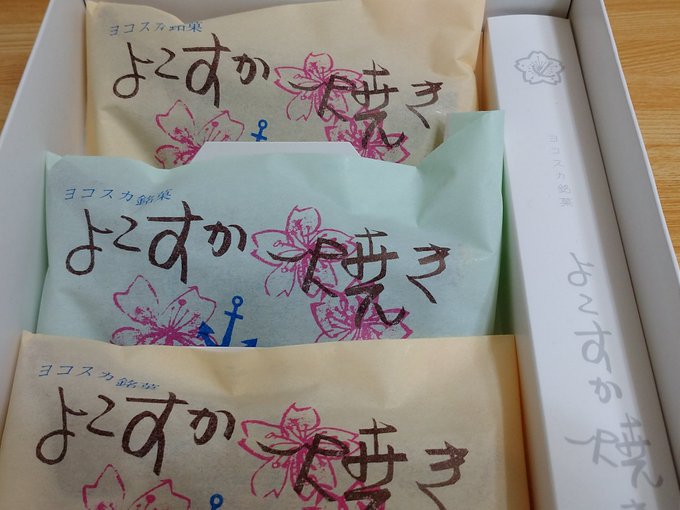 ヨコスカ銘菓
よこすか焼き
ヨコスカ銘菓
よこすか焼き
ヨコスカ銘菓
よこすか焼き
ヨコスカ銘菓
よこすか焼き